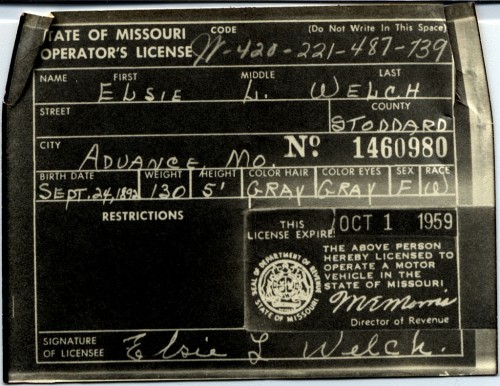 STATE OF MISSOURI CODE (Do Not Write In This Space)
OPERATOR'S LICENSE W-420-221-487-739
NAME FIRST MIDDLE LAST
ELSIE L. WELCH
STREET COUNTY
STODDARD
CITY
ADVANCE, MO. No 1460980
BIRTH DATE WEIGHT HEIGHT COLOR HAIR COLOR EYES SEX RACE
SEPT. 24, 1892 130 5' GRAY GRAY F W
RESTRICTIONS
THIS LICENSE EXPIRES OCT 1 1959
THE ABOVE PERSON
HEREBY LICENSED TO
OPERATE A MOTOR
VEHICLE IN THE
STATE OF MISSOURI
SEAL OF DEPARTMENT OF REVENUE
STATE OF MISSOURI
M E Morris
Director of Revenue
SIGNATURE OF LICENSEE Elsie L Welch.